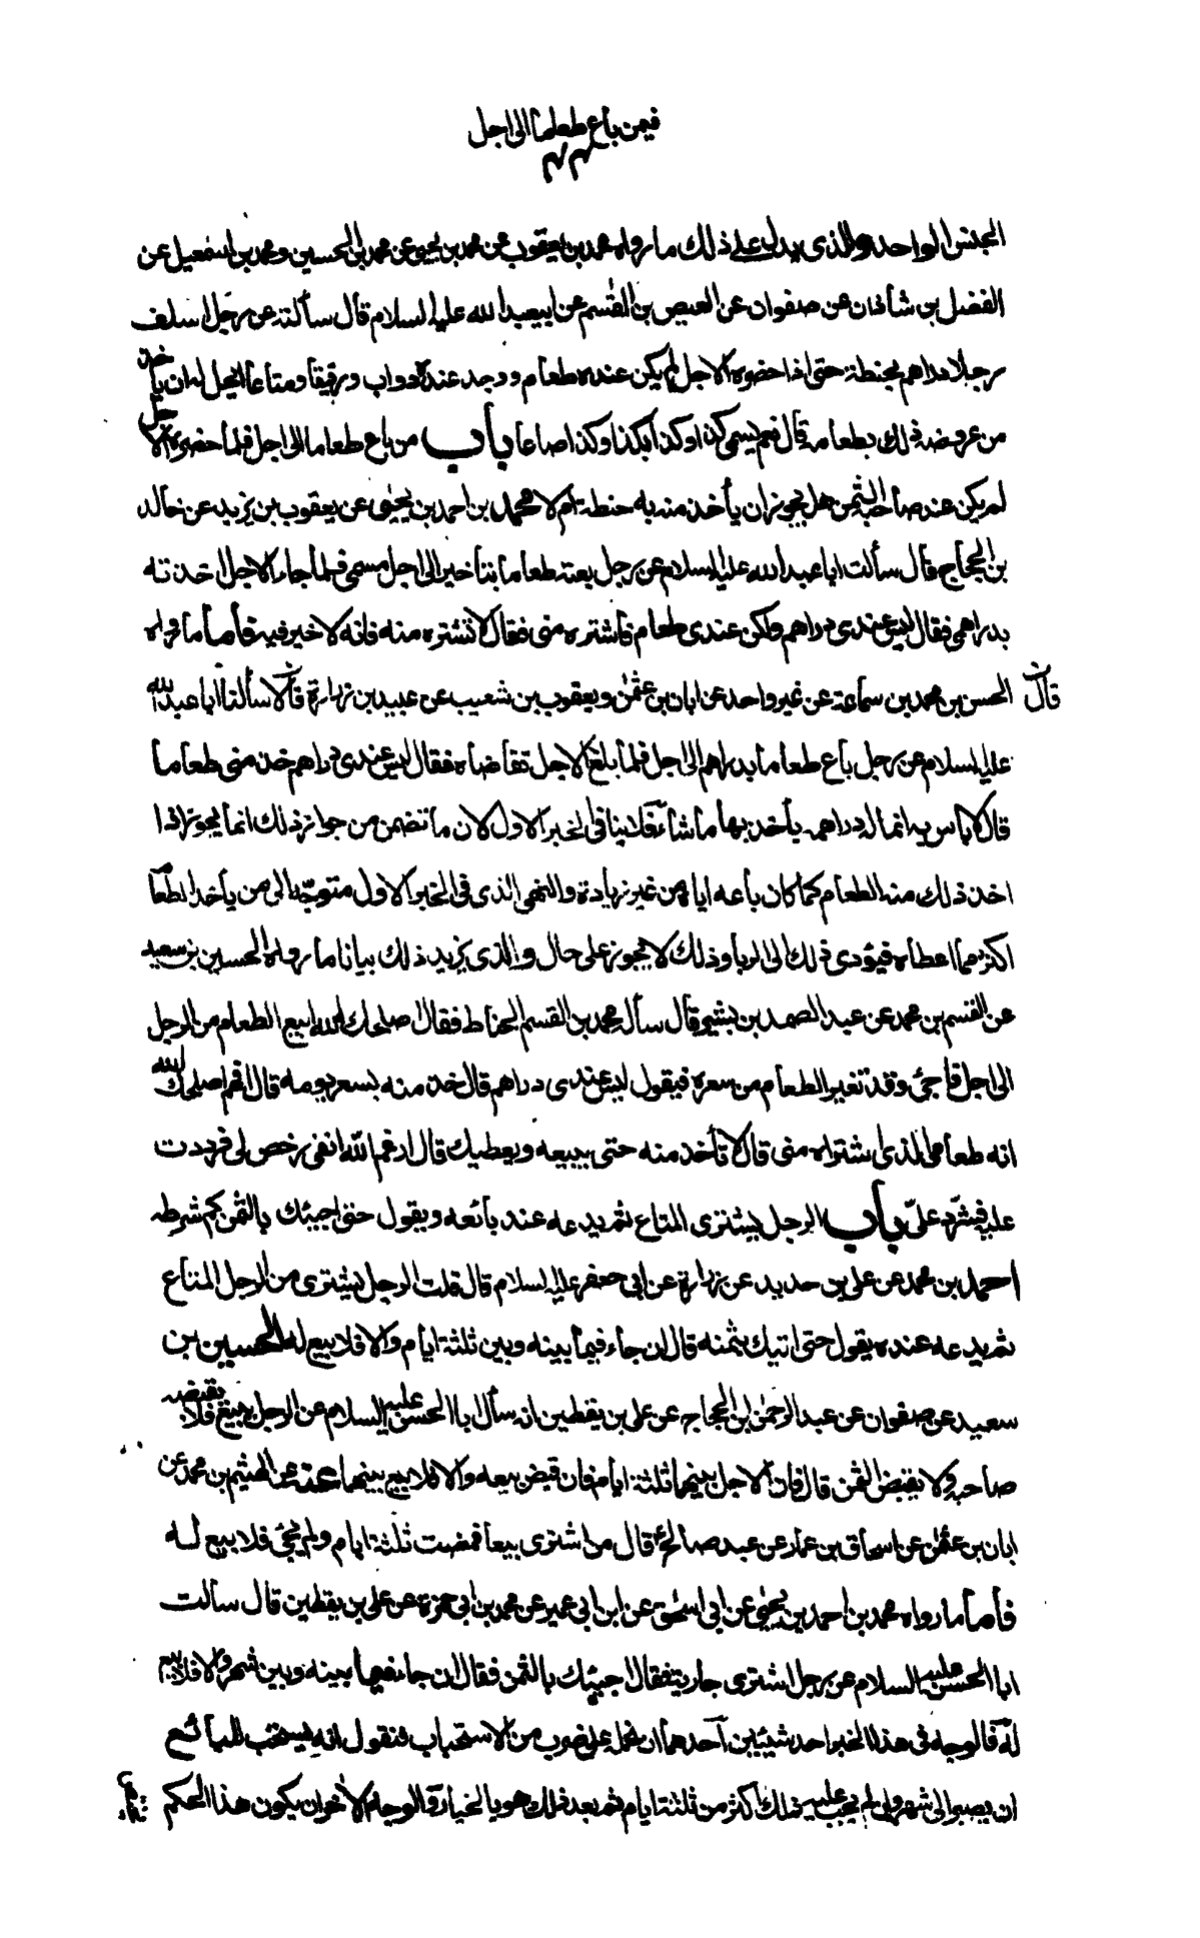 فيمن باع طعاما الى اجل
الجنس الواحد والذى يدل على ذلك ما رواه محمد بن يعقوب عن محمد بن يحيى عن محمد بن الحسين ومحمد بن اسمعيل عن
الفضل بن شاذان عن صفوان عن العيص بن القسم عن ابيعبد الله عليه السلام قال سألته عن رجل اسلف
رجلا دراهم بحنطة حتى اذا حضره الاجل لم يكن عنده طعام ووجد عنده دواب ورقيقا ومتاعا ايحل له ان يأخذ
من عروضه ذلك بطعامه قال نعم يسمى كذا وكذا بكذا وكذا صاعا باب من باع طعاما الى اجل فلما حضره الاجل
لم يكن عند صاحبه الثمن هل يجوز ان يأخذ منه به حنطة ام لا محمد بن احمد بن يحيى عن يعقوب بن يزيد عن خالد
بن الحجاج قال سألت ابا عبد الله عليه السلام عن رجل بعته طعاما بتأخير الى اجل مسمى فلما جاء الاجل اخذته
بدراهمى فقال ليس عندى دراهم ولكن عندى طعام فاشتره منى فقال لا تشتره منه فانه لا خير فيه فأما ما رواه
الحسن بن محمد بن سماعة عن غير واحد عن ابان بن عثمن ويعقوب بن شعيب عن عبيد بن زرارة قالا سألنا ابا عبد الله
قال
عليه السلام عن رجل باع طعاما بدراهم الى اجل فلما بلغ الاجل تقاضاه فقال ليس عندى دراهم خذ منى طعاما
قال لا بأس به انما له دراهمه يأخذ بها ما شاء فلا ينافى الخبر الاول لان ما تضمن من جواز ذلك انما يجوز اذا
اخذ ذلك منه الطعام كما كان باعه اياه من غير زيادة والنهى الذى فى الخبر الاول متوجه الى من يأخذ الطعام
اكثر مما اعطاه فيؤدى ذلك الى الربا وذلك لا يجوز على حال والذى يزيد ذلك بيانا ما رواه الحسين بن سعيد
عن القسم بن محمد عن عبد الصمد بن بشير قال سأله محمد بن القسم الحناط فقال اصلحك الله ابيع الطعام من الرجل
الى اجل فاجئ وقد تغير الطعام من سعره فيقول ليس عندى دراهم قال خذ منه بسعر يومه قال افهم اصلحك الله
انه طعامى الذى اشتراه منى قال لا تأخذ منه حتى يبيعه ويعطيك قال ارغم الله انفى رخص لى فرددت
عليه فشدد علىّ باب الرجل يشترى المتاع ثم يدعه عند بائعه ويقول حتى اجيئك بالثمن كم شرطه
احمد بن محمد عن على بن حديد عن زرارة عن ابى جعفر عليه السلام قال قلت الرجل يشترى من الرجل المتاع
ثم يدعه عنده يقول حتى اتيك بثمنه قال ان جاء فيما بينه وبين ثلثة ايام والا فلا بيع له الحسين بن
سعيد عن صفوان عن عبد الرحمن بن الحجاج عن على بن يقطين انه سأل ابا الحسن عليه السلام عن الرجل يبيع فلا يقبضه
صاحبه ولا يقبض الثمن قال فان الاجل بينهما ثلثة ايام فان قبض بيعه والا فلا بيع بينهما عنه عن الهيثم بن محمد عن
ابان بن عثمن عن اسحاق بن عمار عن عبد صالح ع قال من اشترى بيعا فمضت ثلثة ايام ولم يجئ فلا بيع له
فأما ما رواه محمد بن احمد بن يحيى عن ابى اسحق عن ابن ابى عمير عن محمد بن ابى حمزة عن على بن يقطين قال سألت
ابا الحسن عليه السلام عن رجل اشترى جارية فقال اجيئك بالثمن فقال ان جاء فيما بينه وبين شهر والا فلا بيع
له فالوجه فى هذا الخبر احد شيئين احدهما ان نحمله على ضرب من الاستحباب فنقول انه يستحب للبائع
ان يصبر الى شهر وان لم يجب عليه ذلك اكثر من ثلثة ايام ثم بعد ذلك هو بالخيار والوجه الاخر ان يكون هذا الحكم